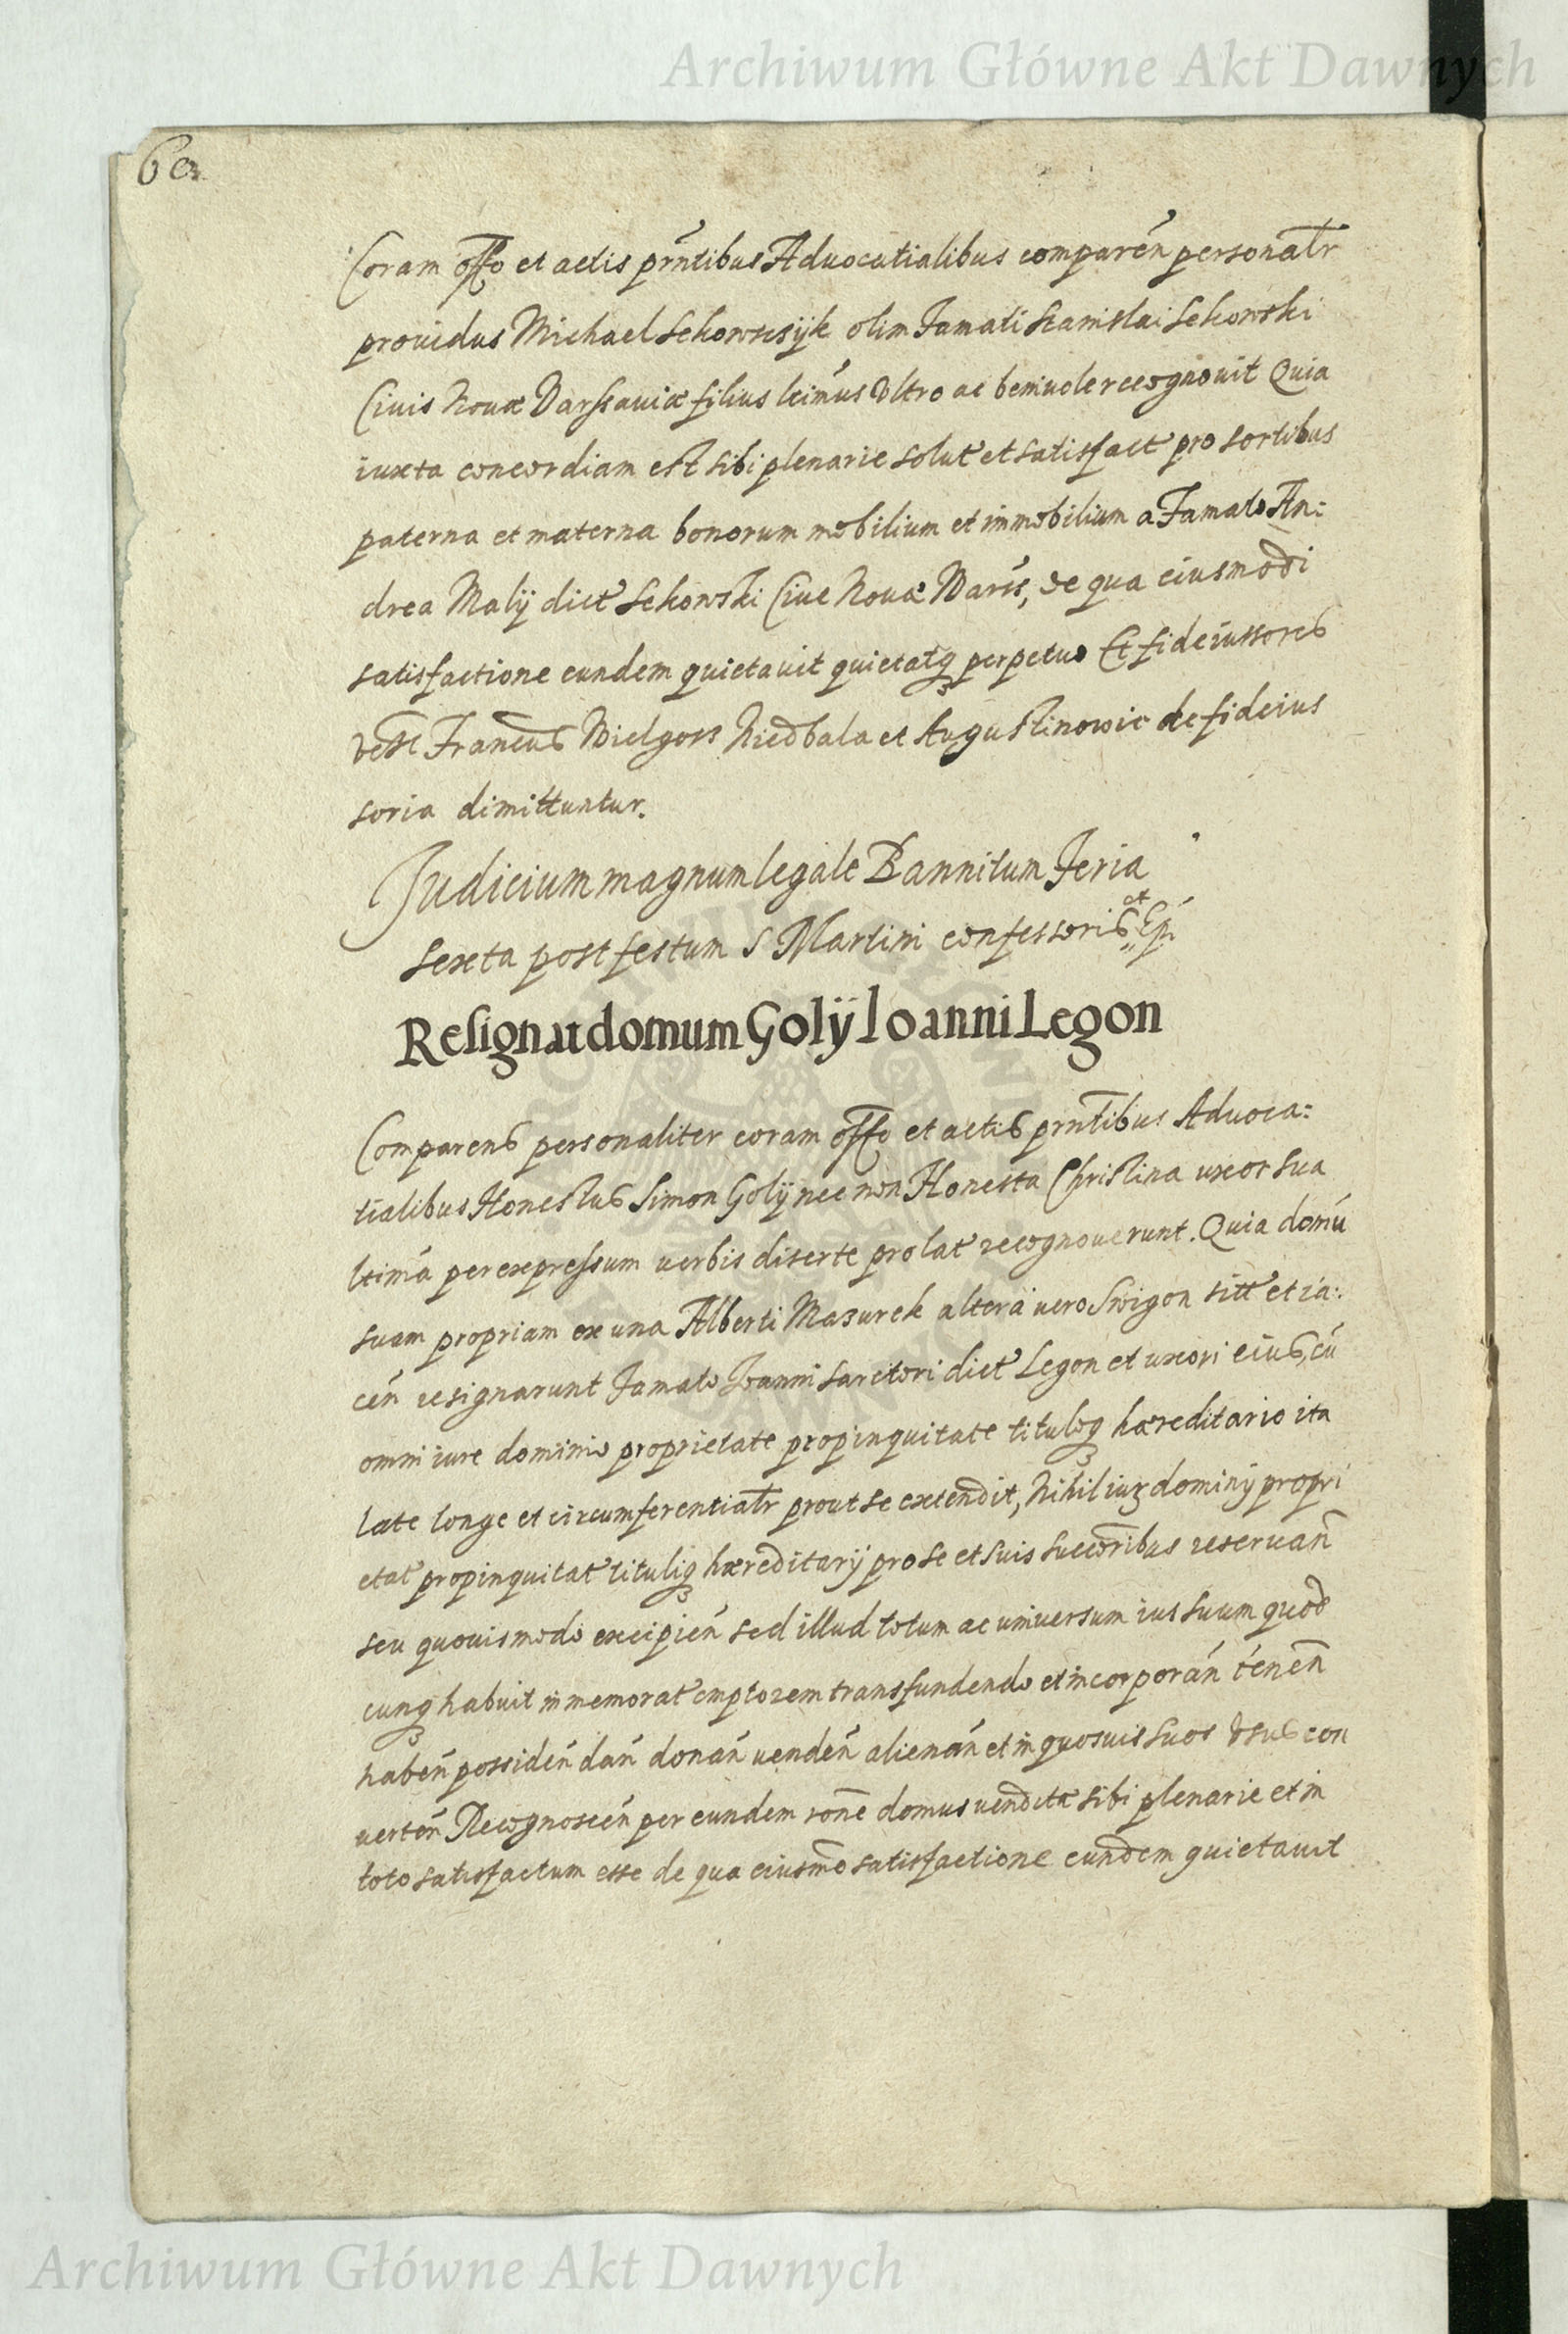 Archiwum Główne Akt Dawnych
60
Coram offo et actis prñtibus Aduocatialibus comparén personatr
prouidus Michael Sekowscsijk olim Famati Stanislai Sekowski
Ciuis Nouæ Varssauiæ filius ltimus Vltro ac beniuole recognouit Quia
iuxta concordiam est sibi plenarie solut et satisfact pro sortibus
paterna et materna bonorum mobilium et immobilium a Famato An:
drea Malÿ dict Sekowski Ciue Nouæ Wars, de qua eiusmodi
satisfactione eundem quietauit quietatq perpetuo Et fideiussores
Francus Wielgoss Niedbala et Augustinowic de fideius
soria dimittuntur.
Judicium magnum legale Bannitum Feria
sexta post festum S Martini confessoris et Ep.
Resignat domum Golÿ Ioanni Legon
Comparens personaliter coram offo et actis prntibus Aduoca:
tialibus Honestus Simon Golÿ nec non Honesta Christina uxor sua
ltima per expressum uerbis diserte prolat recognouerunt. Quia domú
suam propriam ex una Alberti Mazurek altera uero Swigon sitt et ia:
cén resignarunt Famato Joanni Sarctori dict Legon et uxori eius, cú
omni iure dominio proprietate propinquitate tituloq hæreditario ita
late longe et circumferentiatr prout se extendit, Nihil iuz dominÿ propri
etat propinquitat tituliq hæreditarÿ pro se et suis succoribus reseruan
seu quouismodo excipién sed illud totum ac uniuersum ius suum quod
cunq habuit in memorat emptorem transfundendo et incorporán ténen
habén possidén dan donán uendén alienán et in quosuis suos Vsus con
uertén Recognoscén per eundem rone domus uenditæ sibi plenarie et in
toto satisfactum esse de qua eiusmo satisfactione eundem quietauit
Archiwum Główne Akt Dawnych